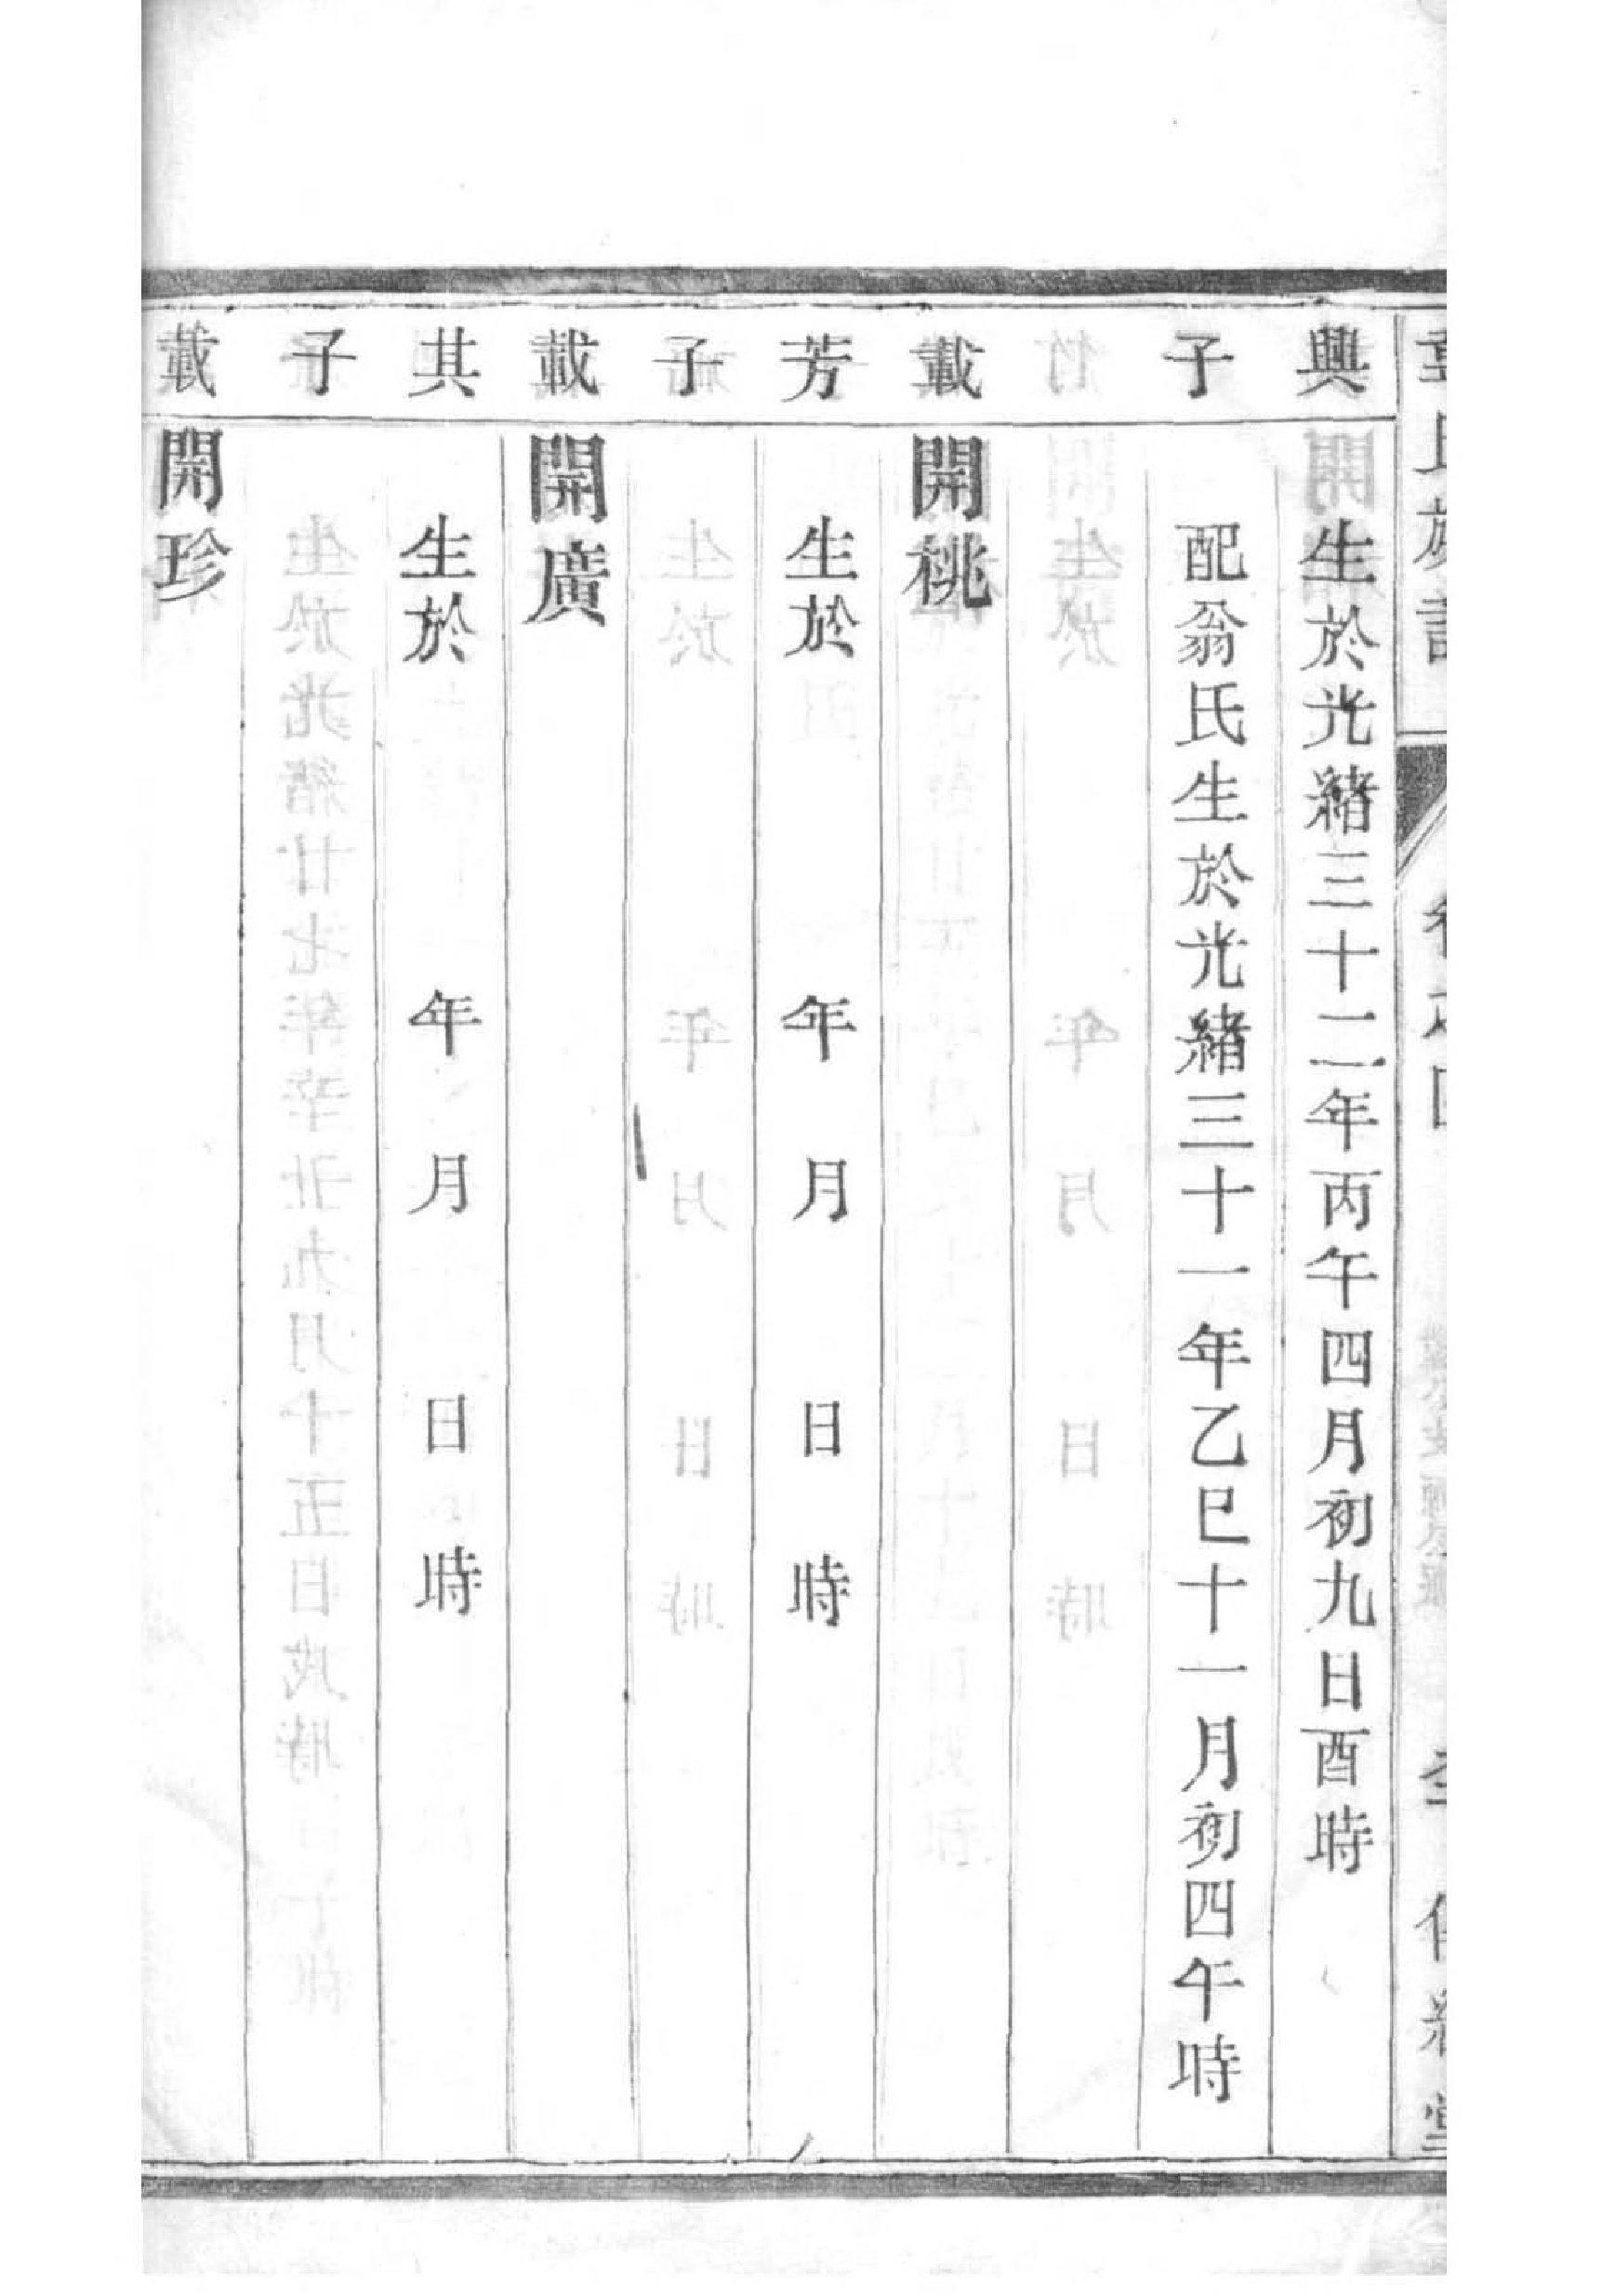 興 生於光緒三十二年丙午四月初九日酉時
子 配翁氏生於光緒三十一年乙巳十一月初四午時
載 開桃
芳 生於 年 月 日 時
子
載 開廣
其 生於 年 月 日 時
子
載 開珍